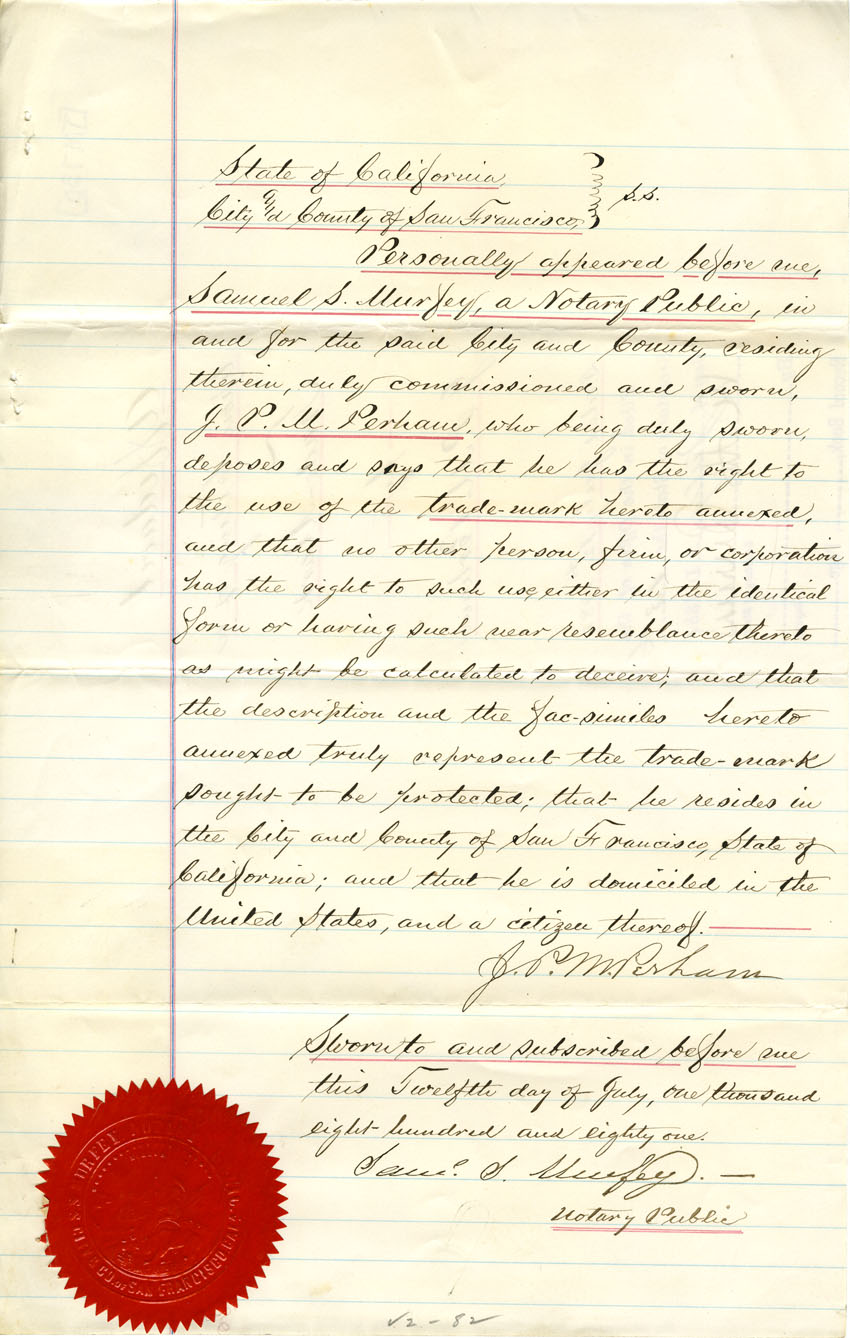 State of California,
City and County of San Francisco, } s.s.
Personally appeared before me,
Samuel S. Murfey, a Notary Public, in
and for the said City and County, residing
therein, duly commissioned and sworn,
J. P. M. Perham, who being duly sworn,
deposes and says that he has the right to
the use of the trade-mark hereto annexed,
and that no other person, firm, or corporation
has the right to such use, either in the identical
form or having such near resemblance thereto
as might be calculated to deceive; and that
the description and the fac-similes hereto
annexed truly represent the trade-mark
sought to be protected; that he resides in
the City and County of San Francisco, State of
California; and that he is domiciled in the
United States, and a citizen thereof.
J. P. M. Perham
Sworn to and subscribed before me
this Twelfth day of July, one thousand
eight hundred and eighty one.
Saml. S. Murfey. —
Notary Public
CITY & CO. OF SAN FRANCISCO
√2-82